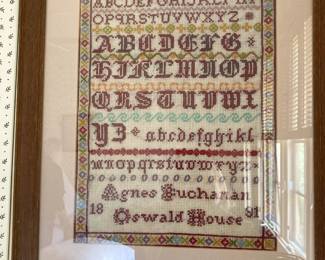 ABCDEFGHIJKLM
OPQRSTUVWXYZ
ABCDEFG
HIKLMNOP
QRSTUVWX
YZ abcdefghikl
mnopqrstuvwxyz
Agnes Buchanan
18 91
Oswald House